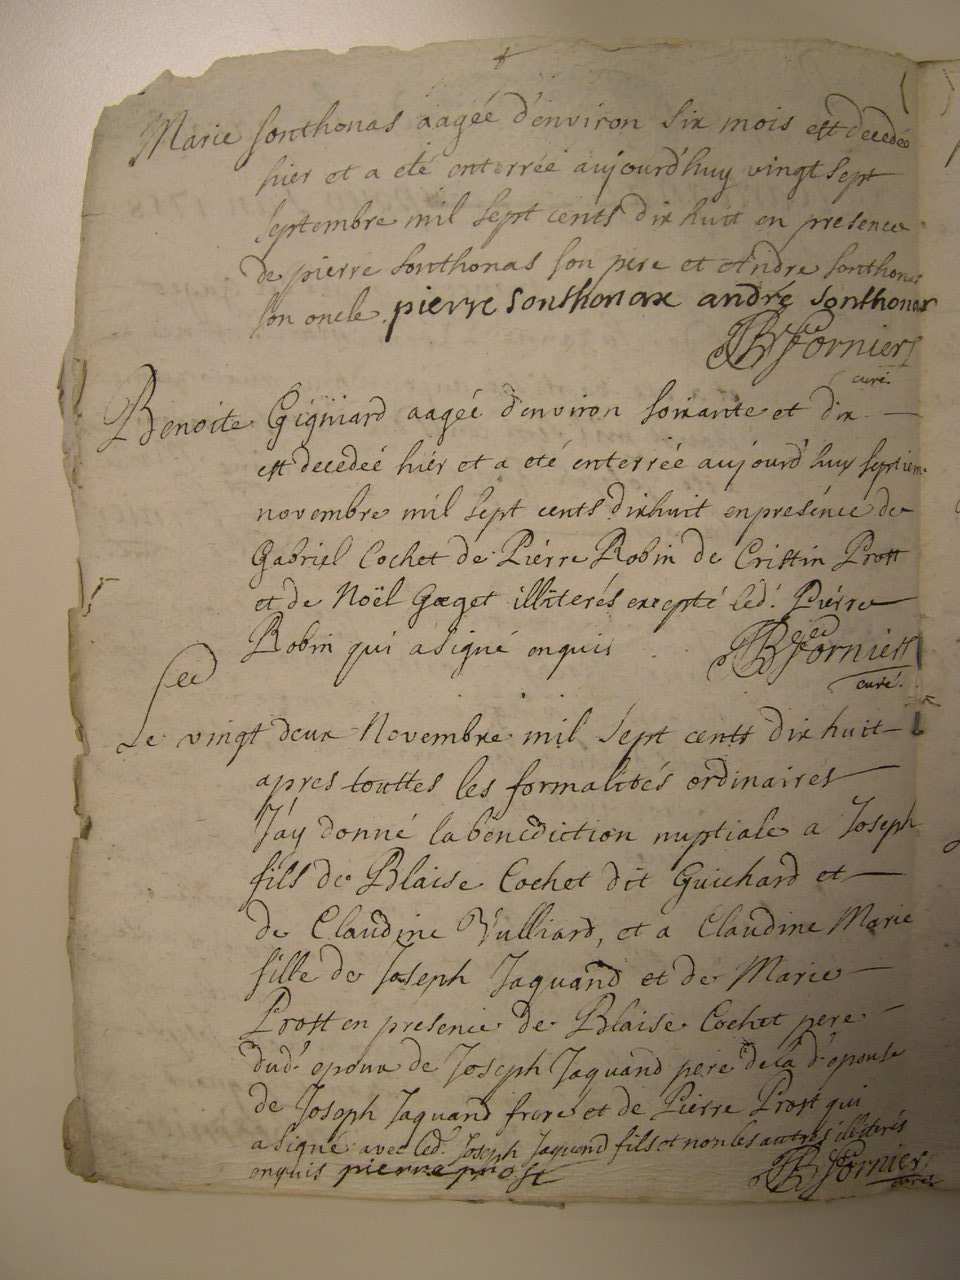 Marie sonthonas aagée d'environ six mois est decedée
hier et a eté enterrée aujourd'huy vingt sept
septembre mil sept cents dix huit en presence
de pierre sonthonas son pere et Andre sonthonas
son oncle. pierre sonthonax andré sonthonax
Fornier
curé.
Benoite Gigniard aagée d'environ soixante et dix
est decedeé hiér et a eté enterreé aujourd'huy septiem.
novembre mil sept cents dixhuit en presénce de
Gabriel Cochet de Piérre Robin de Cristin Prost
et de Noël Gæget illiterés excepté led. Piérre
Robin qui a signé enquis
Fornier
curé.
Le vingt deux Novembre mil sépt cents dix huit
apres touttes les formalités ordinaires
J'ay donné la bénediction nuptiale a Joseph
fils de Blaise Cochet dit Guichard et
de Claudine Vulliard, et a Claudine Marie
fille de Joseph Jaquand et de Marie
Prost en presence de Blaise Cochet pere
dud. epoux de Joseph Jaquand pere de la d. epouse
de Joseph Jaquand frere et de Pierre Prost qui
a signé avec led. Joseph Jaquand fils et non les autres illiterés
enquis pierre prost
Fornier
curé